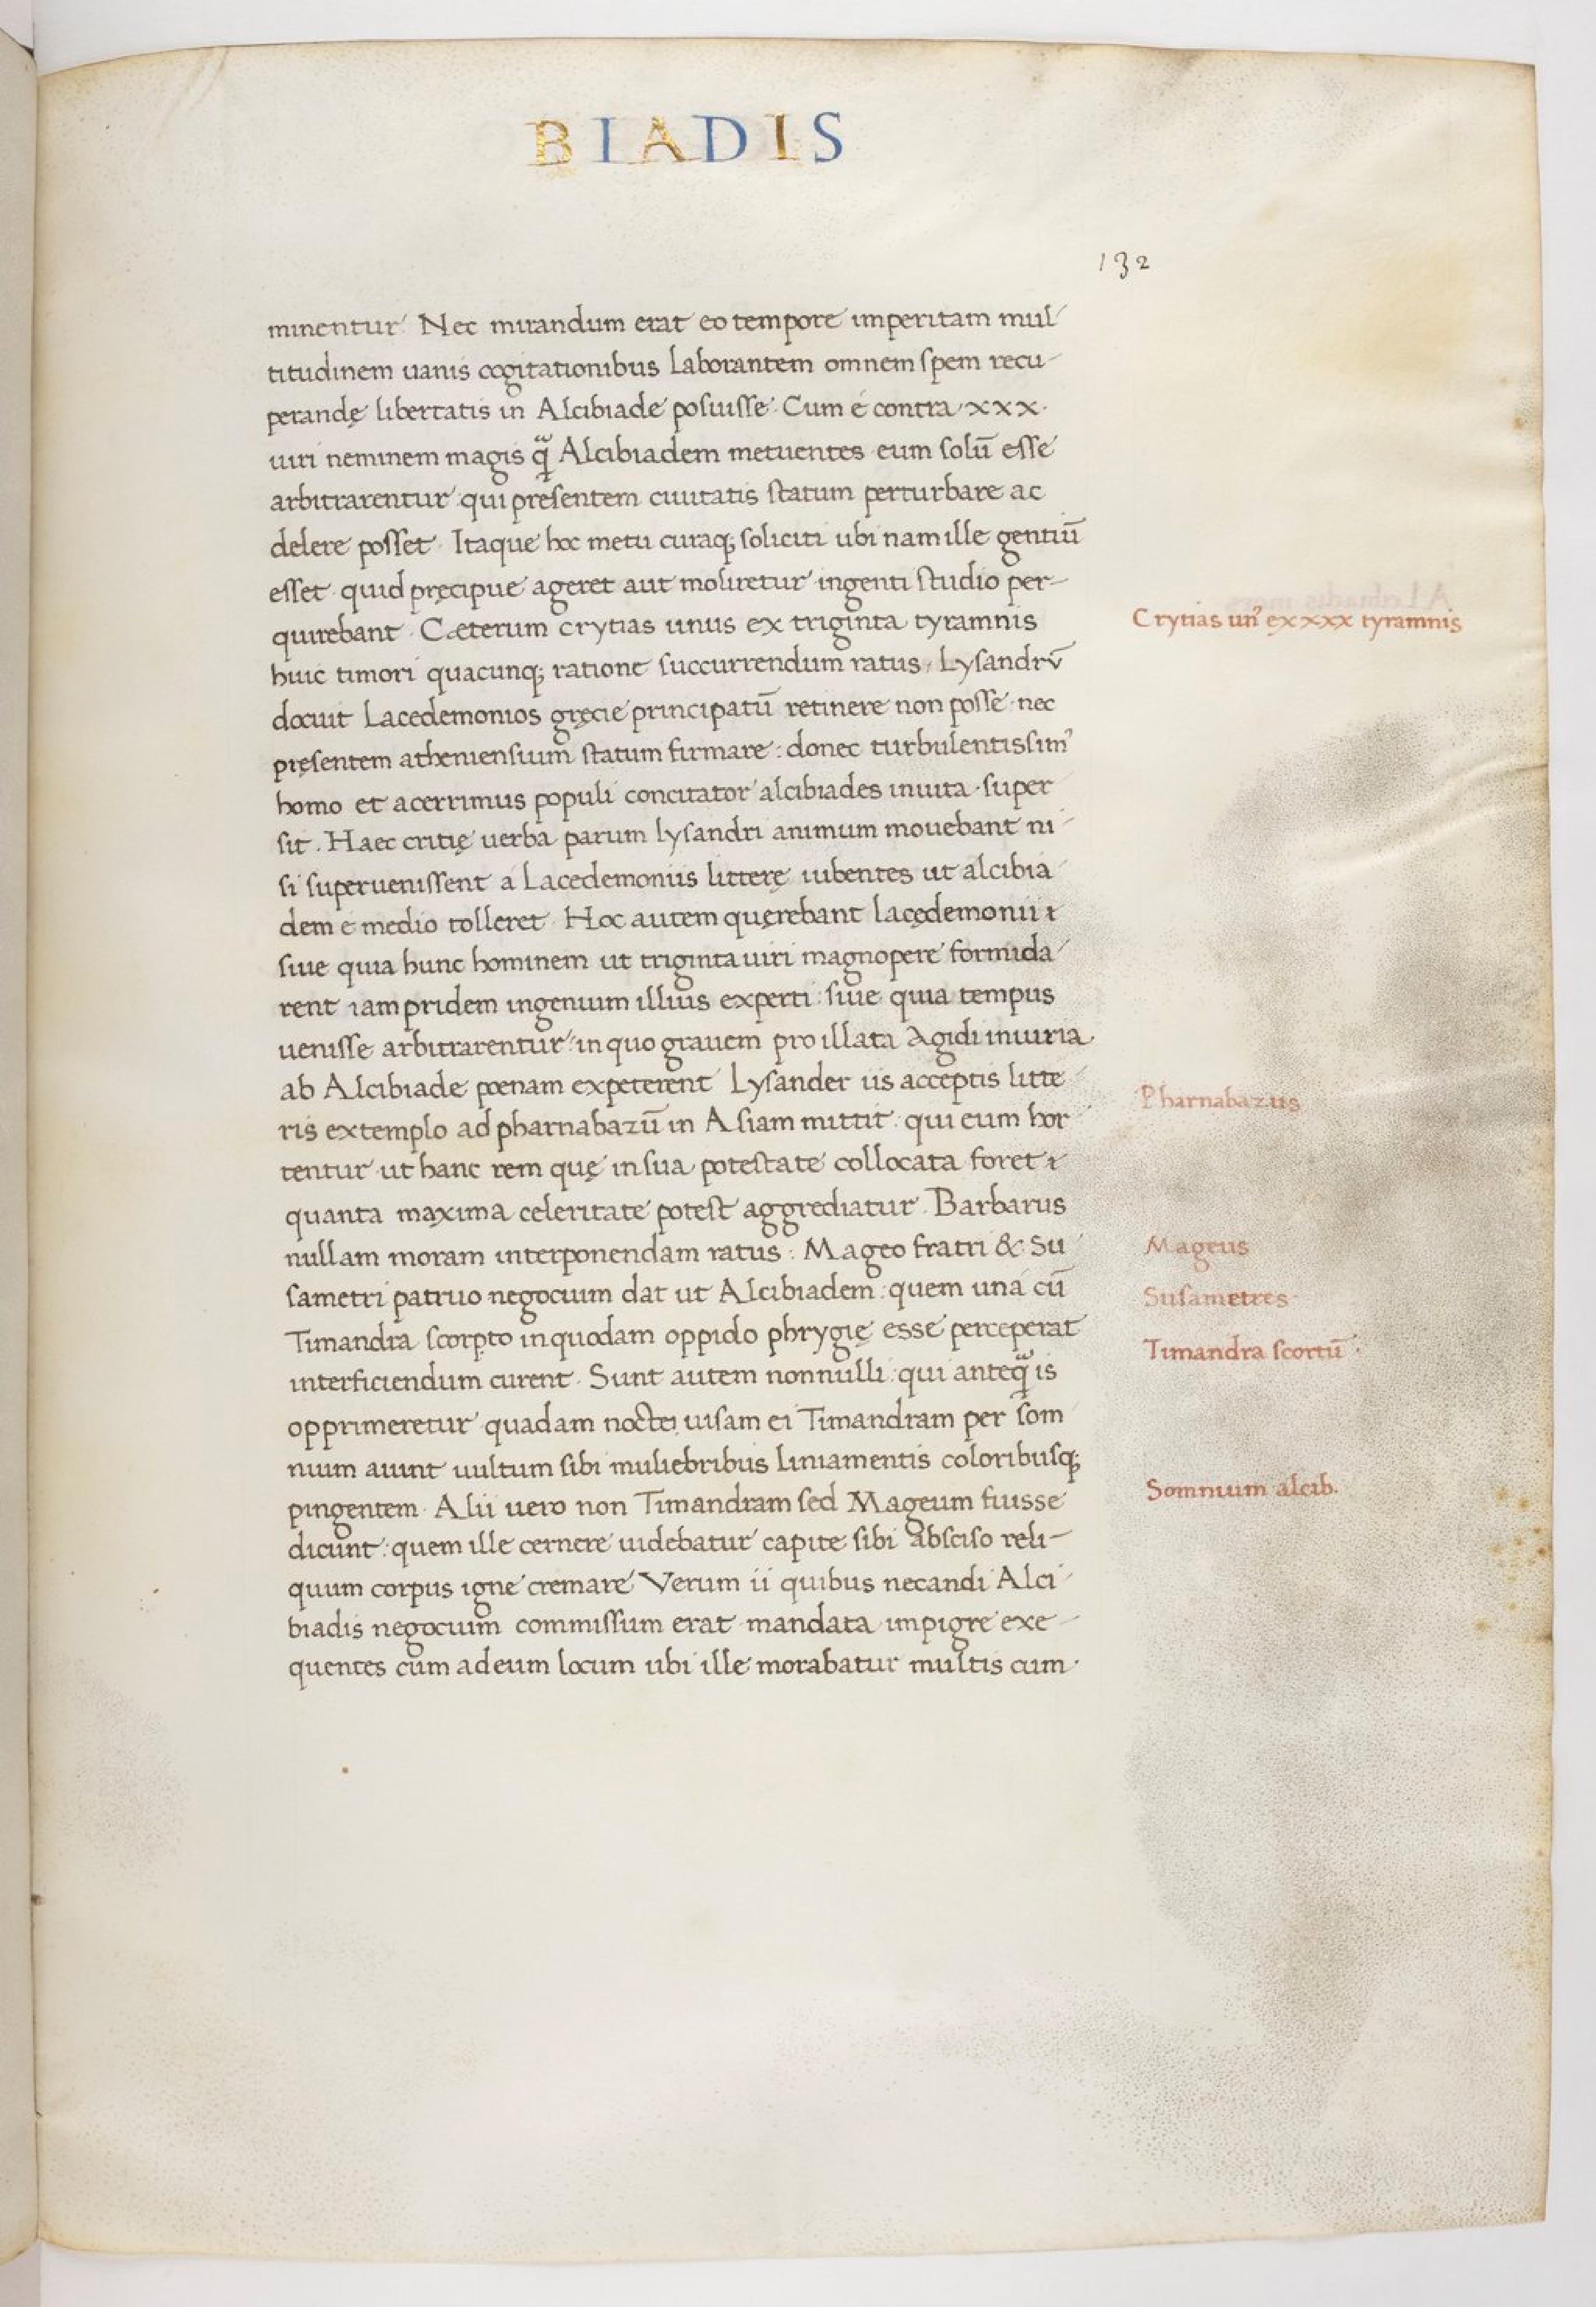 BIADIS
132
minentur. Nec mirandum erat eo tempore imperitam mul-
titudinem uanis cogitationibus laborantem omnem spem recu-
perandę libertatis in Alcibiade posuisse. Cum é contra xxx.
uiri neminem magis q̃ Alcibiadem metuentes eum solū esse
arbitrarentur qui pręsentem ciuitatis statum perturbare ac
delere posset. Itaque hoc metu curaq; soliciti ubi nam ille gentiū
esset quid pręcipue ageret aut moliretur ingenti studio per-
quirebant. Cæterum crytias unus ex triginta tyramnis
Crytias un⁹ ex xxx tyramnis
huic timori quacunq; ratione succurrendum ratus, Lysandrū
docuit Lacedemonios gręcie principatū retinere non posse nec
pręsentem atheniensium statum firmare: donec turbulentissim⁹
homo et acerrimus populi concitator alcibiades in uita super
sit. Haec critię uerba parum lysandri animum mouebant ni-
si superuenissent a Lacedemoniis litterę iubentes ut alcibia-
dem e medio tolleret. Hoc autem quęrebant lacędemonii
siue quia hunc hominem ut triginta uiri magnopere formida-
rent iam pridem ingenium illius experti: siue quia tempus
uenisse arbitrarentur: in quo grauem pro illata Agidi iniuria
ab Alcibiade poenam expeterent Lysander iis acceptis litte-
ris extemplo ad pharnabazū in Asiam mittit. qui eum hor
Pharnabazus
tentur ut hanc rem quę in sua potestate collocata foret
quanta maxima celeritate potest aggrediatur. Barbarus
nullam moram interponendam ratus: Mageo fratri & Su-
Mageus
sametri patruo negocium dat ut Alcibiadem: quem una cū
Susametres
Timandra scorpto in quodam oppido phrygię esse perceperat
Timandra scortū.
interficiendum curent. Sunt autem nonnulli: qui anteq̃ is
opprimeretur quadam nocte uisam ei Timandram per som-
nium aiunt uultum sibi muliebribus liniamentis coloribusq;
Somnium alcib.
pingentem. Alii uero non Timandram sed Mageum fuisse
dicunt: quem ille cernere uidebatur capite sibi absciso reli-
quum corpus igne cremare Verum ii quibus necandi Alci-
biadis negocium commissum erat mandata impigre exe-
quentes cum ad eum locum ubi ille morabatur multis cum